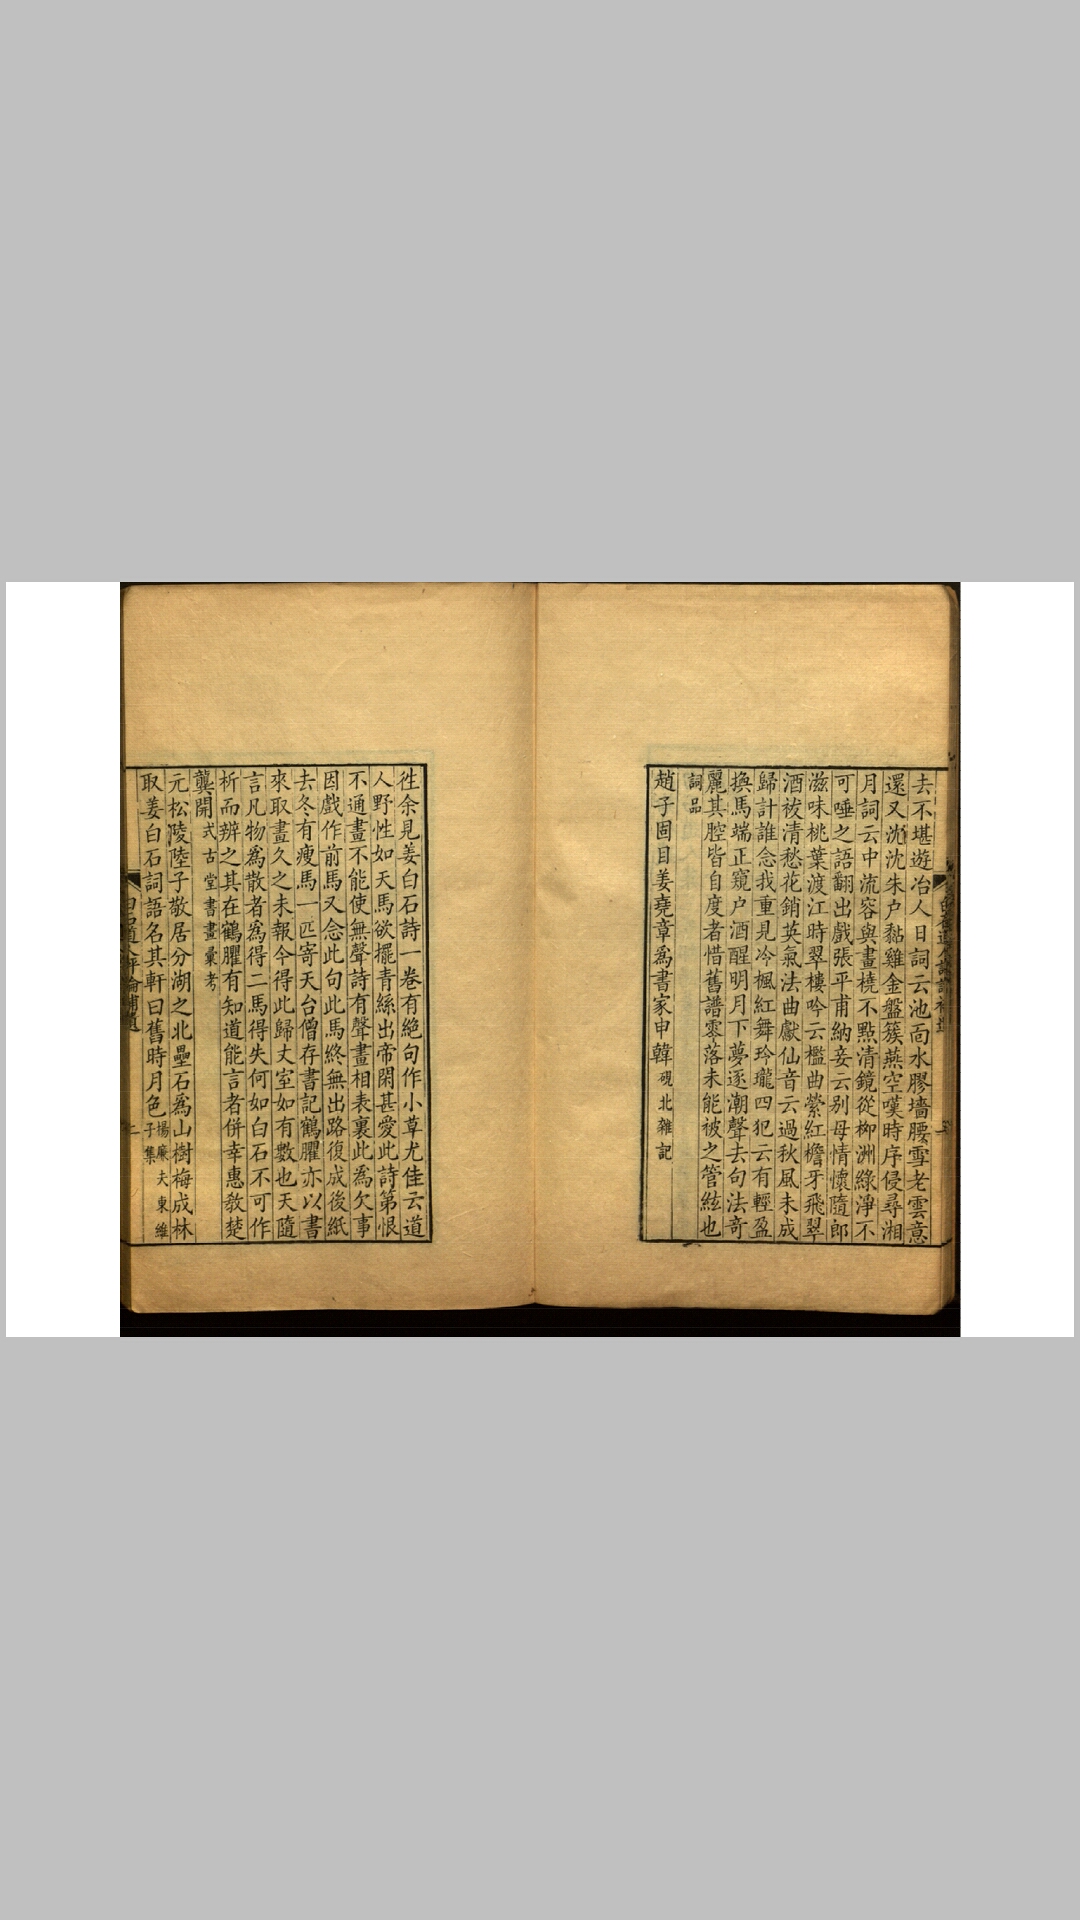 去不堪遊冶人日詞云池面水膠墻腰雪老雲意
還又沈沈朱户黏雞金盤簇燕空嘆時序侵尋湘
月詞云中流容與畫橈不點清鏡從柳洲綠淨不
可唾之語翻出戲張平甫納妾云别母情懷隨郎
滋味桃葉渡江時翠樓吟云檻曲縈紅檐牙飛翠
酒袚清愁花銷英氣法曲獻仙音云過秋風未成
歸計誰念我重見冷楓紅舞玲瓏四犯云有輕盈
換馬端正窺户酒醒明月下夢逐潮聲去句法奇
麗其腔皆自度者惜舊譜零落未能被之管絃也
詞品
趙子固目姜堯章爲書家申韓 硯北雜記
徃余見姜白石詩一卷有絶句作小草尤佳云道
人野性如天馬欲擺青絲出帝閑甚愛此詩第恨
不通畫不能使無聲詩有聲畫相表裏此爲欠事
因戲作前馬又念此句此馬終無出路復成後紙
去冬有瘦馬一匹寄天台僧存書記鶴臞亦以書
來取畫久之未報今得此歸丈室如有數也天隨
言凡物爲散者爲得二馬得失何如白石不可作
析而辨之其在鶴臞有知道能言者併幸惠敎楚
龔開 式古堂書畫彙考
元松陵陸子敬居分湖之北壘石爲山樹梅成林
取姜白石詞語名其軒曰舊時月色 楊廉夫東維
子集
白石道人評論補遺
二